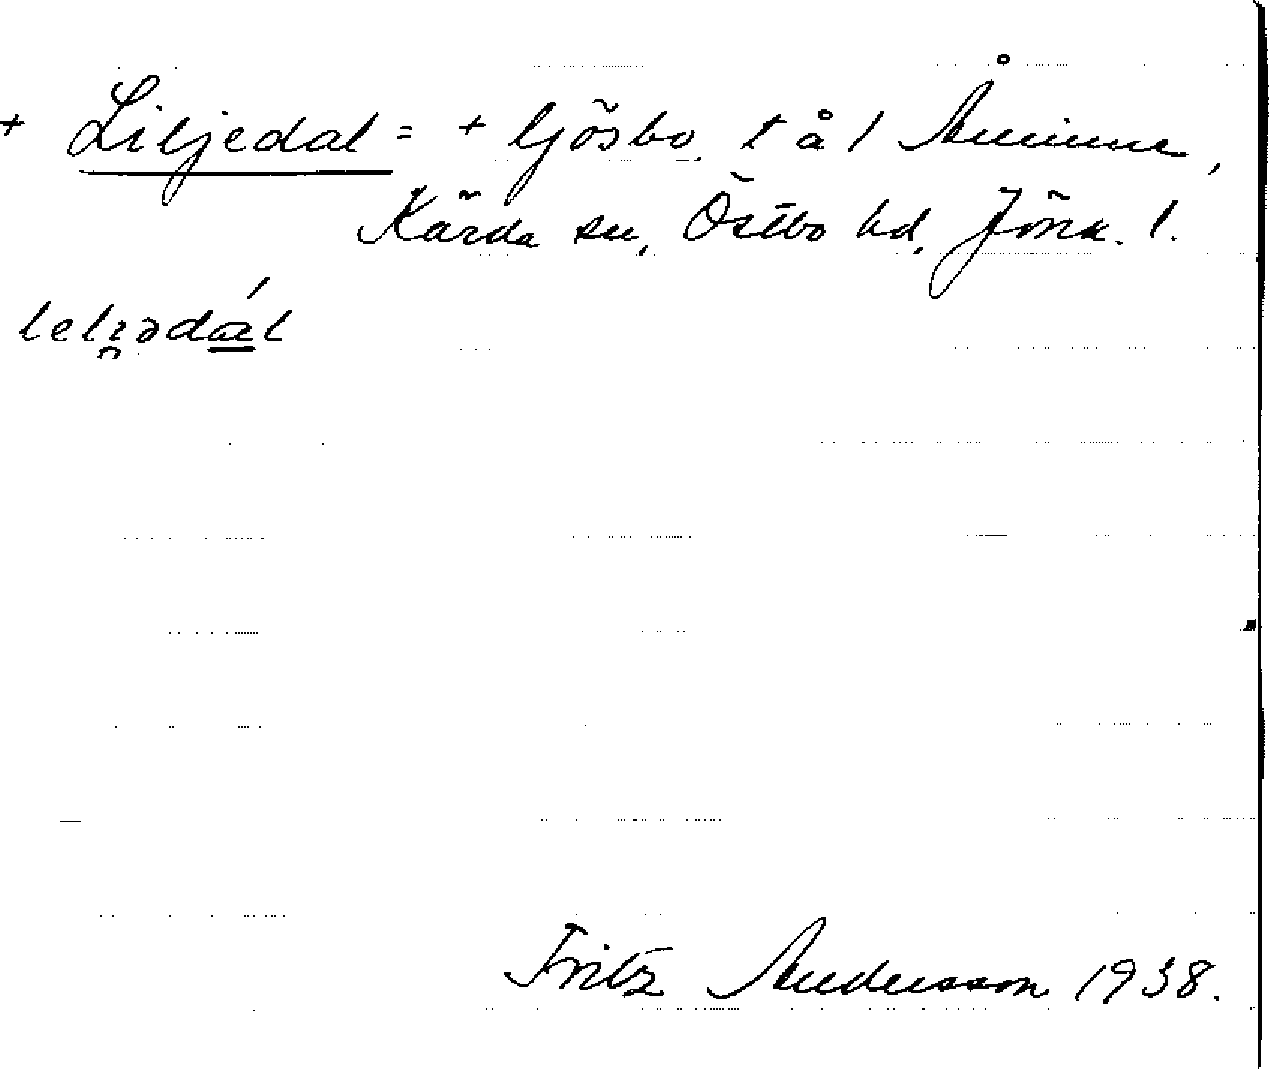 + Liljedal = + ljösbo, t å 1 Åminne,
Kärda sn, Östbo hd, Jönk. l.
Fritz Andersson 1938.